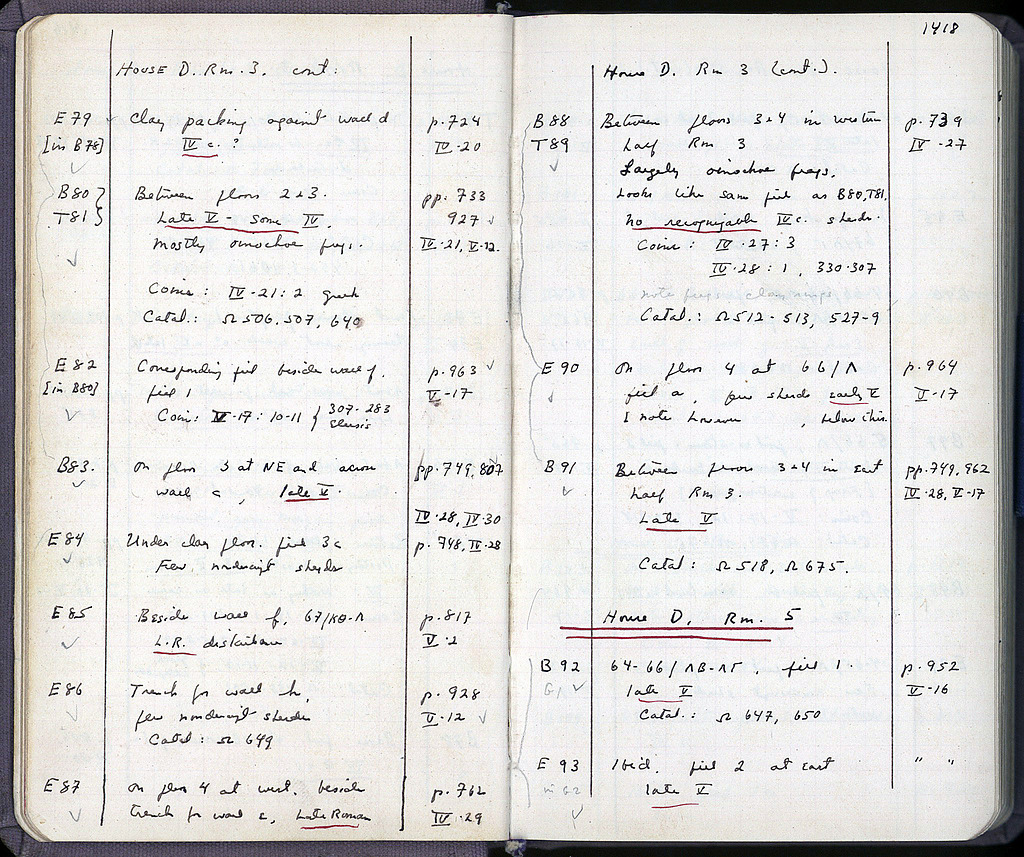 House D. Rm. 3. cont.
E79 Clay packing against wall d p. 724
[in B78] IV c. ? IV-20
B80 } Between floors 2+3. pp. 733
T81 } Late V - some IV. 927
Mostly oinochoe frgs. IV-21, V-12.
Coins: IV-21:2 greek
Catal.: Ω 506, 507, 640
E82 Corresponding fill beside wall f. p. 963
[in B80] fill 1 V-17
Coin: V-17:10-11 { 307-283
Eleusis
B83. on floor 3 at NE and across pp. 749, 807
wall c late V
IV-28, IV-30
E84 Under clay floor. fill 3c p. 748, IV-28
Few, nondescript sherds
E85 Beside wall f, 67/ΚΘ-Λ p. 817
L.R. disturbance V-2
E86 Trench for wall h, p. 928
few nondescript sherds V-12
Catal: Ω 649
E87 on floor 4 at west, beside p. 762
trench for wall c, Late Roman IV-29
1418
House D. Rm 3 (cont.).
B88 Between floors 3+4 in western p. 739
T89 half Rm 3 IV-27
Largely oinochoe frags.
Looks like same fill as B80, T81.
No recognizable IV c. sherds.
Coins: IV-27:3
IV-28:1, 330-307
note frgs
Catal.: Ω 512-513, 527-9
E90 on floor 4 at 66/Λ p. 964
fill a, few sherds early V V-17
I note however, below this.
B91 Between floors 3+4 in east pp. 749, 962
half Rm 3. IV-28, V-17
Late V
Catal: Ω 518, Ω 675.
House D, Rm. 5
B92 64-66/ΛΒ-ΛΓ, fill 1 p. 952
G1 late V V-16
Catal.: Ω 647, 650
E93 Ibid. fill 2 at East " "
in G2 late V